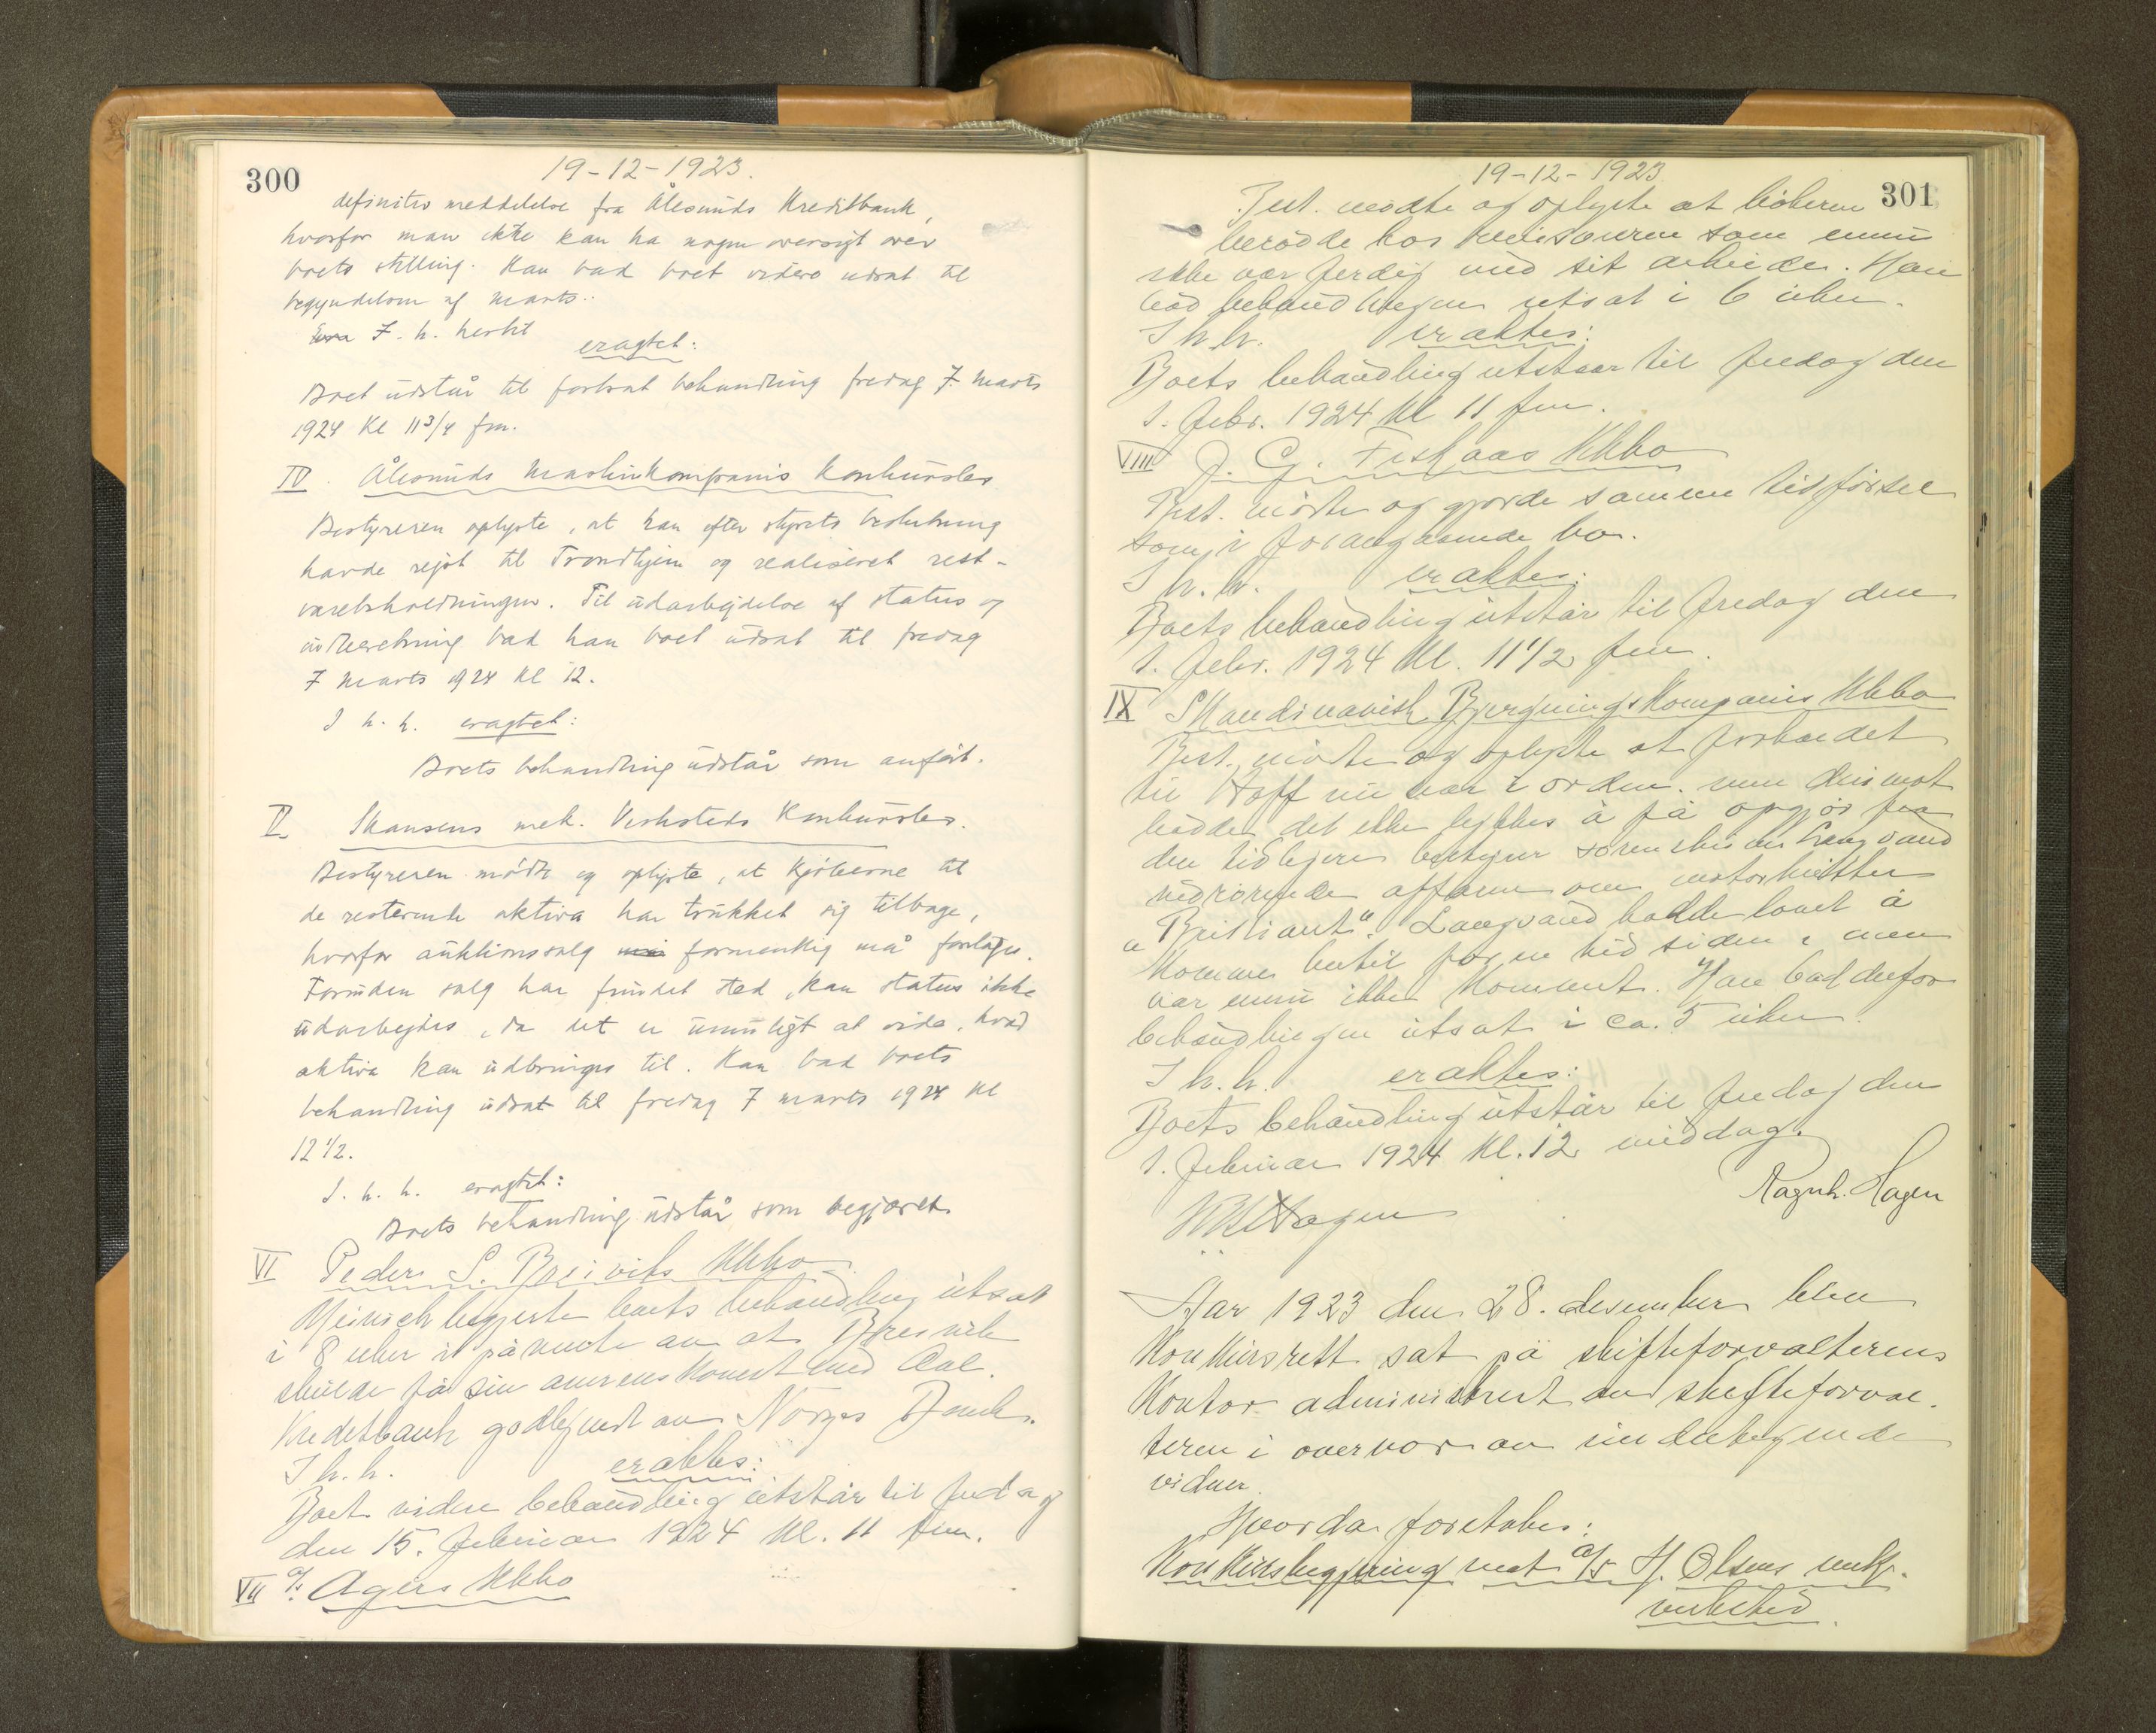 300
19-12-1923.
definitiv meddelelse fra Ålesunds Kreditbank,
hvorfor man ikke kan ha nogen oversigt over
boets stilling. Han bad boet videre udsat til
begyndelsen af marts.
I. h. hertil
eragtet:
Boet udstår til fortsat behandling fredag 7 marts
1924 Kl 11 3/4 fm.
IV. Ålesunds Maskinkompanis Konkursbo
Bestyreren oplyste, at han efter styrets beslutning
havde rejst til Trondhjem og realiseret rest-
varebeholdningen. Til udarbejdelse af status og
indberetning bad han boet udsat til fredag
7 marts 1924 kl 12.
I h. h. eragtet:
Boets behandling udstår som anført.
V Skansens mek. Verksteds Konkursbo.
Bestyreren mødte og oplyste, at kjøberne til
de resterende aktiva har trukket sig tilbage,
hvorfor auktionssalg formentlig må foretages.
Forinden salg har fundet sted, kan status ikke
udarbejdes, da det er umuligt at vide, hvad
aktiva kan udbringes til. Han bad boets
behandling udsat til fredag 7 marts 1924 kl
12 1/2.
I. h. h. eragtet:
Boets behandling udstår som begjæret.
VI Peder S. Breiviks Kkbo
begjerte boets behandling utsat
i 8 uker i påvente av at Breivik
skulde få sin overenskomst med Aal.
Kreditbank godkjendt av Norges Bank.
I h. h. eraktes:
Boets videre behandling utstår til fredag
den 15. februar 1924 kl. 11 fm.
VII A/s Agers Kkbo
19-12-1923
301
Best. mødte og oplyste at bökerne
berodde hos revisoren som ennu
ikke var ferdig med sit arbeide. Han
bad behandlingen utsat i 6 uker.
I h. h. eraktes:
Boets behandling utstaar til fredag den
1. febr. 1924 kl 11 fm.
VIII J. G. Fiskaas Kkbo
Best. mødte og gjorde samme tilførsel
som i foregaaende bo.
I h. h. eraktes:
Boets behandling utstår til fredag den
1. febr. 1924 kl. 11 1/2 fm.
IX Skandinavisk Bjergningskompanis Kkbo
Best. mødte og oplyste at forholdet
til Hoff nu var i orden. men derimot
hadde det ikke lykkes å få opgjör fra
den tidligere bestyrer sorenskriver Langvand
vedrörende affæren om motorkutter
"Brilliant". Langvand hadde lovet å
komme hertil for en tid siden, men
var ennu ikke kommet. Han bad derfor
behandlingen utsat i ca. 5 uker.
I h. h. eraktes:
Boets behandling utstår til fredag den
1. februar 1924 kl. 12 middag.
Ragnh. Hagen
Hagen
Aar 1923 den 28. desember blev
Konkursrett sat på skifteforvalterens
Kontor administrert av skifteforval-
teren i overvær av undertegnede
vidner.
Hvorda foretokes:
Konkursbegjæring mot A/S H. Olsens mek.
verksted.